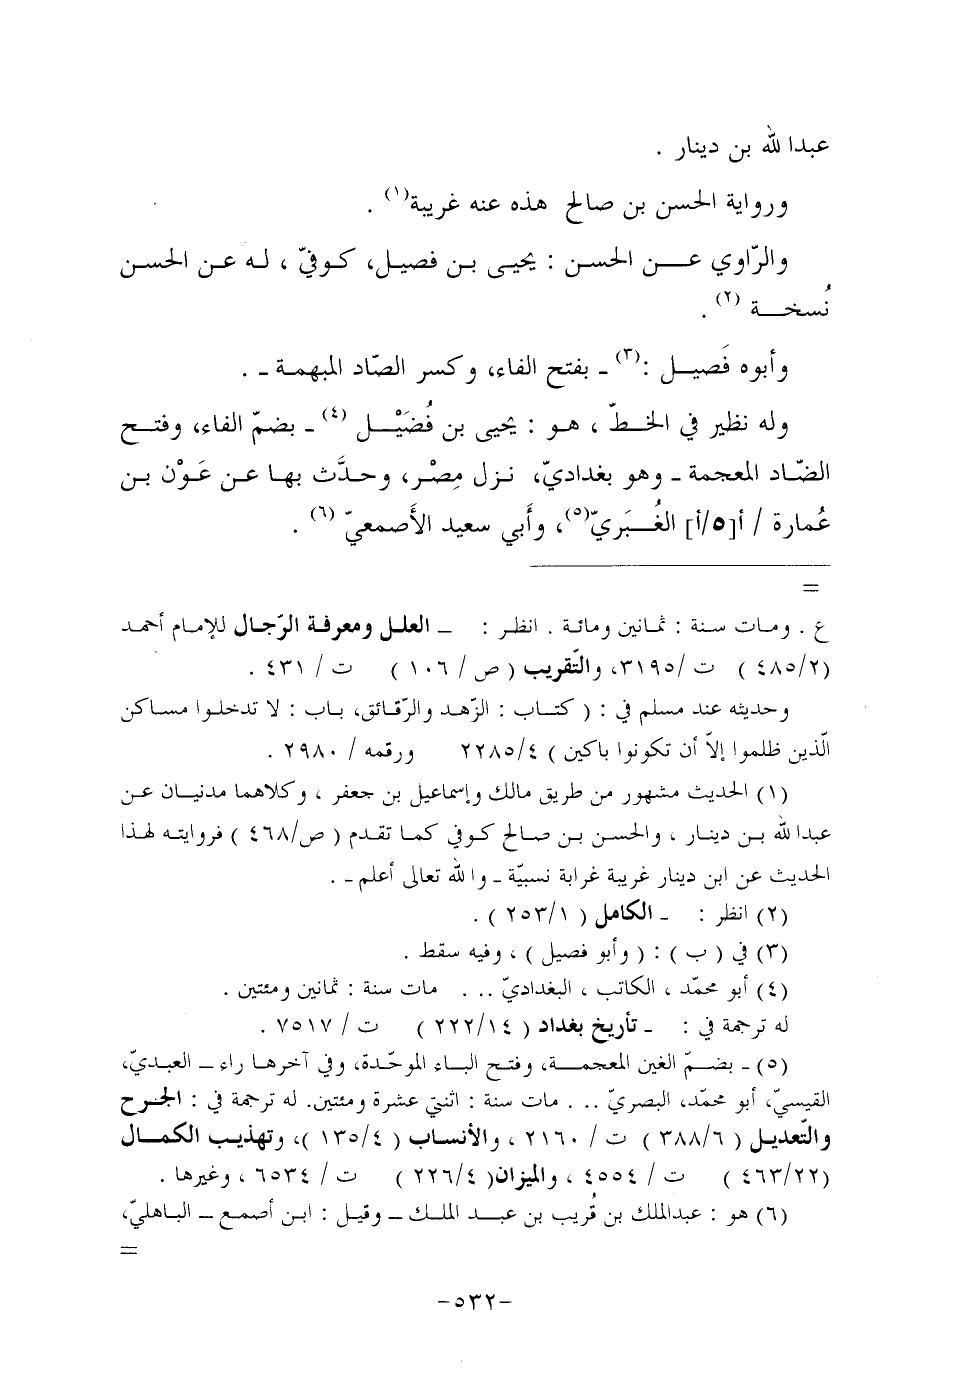 عبدا لله بن دينار .
ورواية الحسن بن صالح هذه عنه غريبة(١) .
والرّاوي عـــن الحسن : يحيى بـن فصيـل، كـوفيّ ، لـه عـن الحسـن
نُسخـــة (٢) .
وأبوه فَصيـــل :(٣) ـ بفتح الفاء، وكسر الصّاد المبهمة ـ .
وله نظير في الخــطّ ، هـو : يحيى بن فُضَيْـــل (٤) ـ بضمّ الفاء، وفتـح
الضّاد المعجمة ـ وهو بغداديّ، نـزل مِصْـر، وحـدَّث بهـا عـن عَـوْن بـن
عُمارة / أ[٥/أ] الغُـــبَريّ(٥)، وأَبي سعيد الأَصمعيّ (٦) .
=
ع . ومـات سنـة : ثمـانين ومائـة . انظـر : ــ العلـل ومعرفـة الرّجـال للإمـام أحمـد
(٤٨٥/٢ ) ت /٣١٩٥، والتّقريب ( ص / ١٠٦ ) ت / ٤٣١ .
وحديثه عند مسلم في : ( كتـاب : الزّهـد والرّقـائق، بـاب : لا تدخلـوا مسـاكن
الّذين ظلموا إلاّ أن تكونوا باكين ) ٢٢٨٥/٤ ورقمه / ٢٩٨٠ .
(١) الحديث مشهور من طريق مالك وإسماعيل بن جعفر ، وكلاهما مدنيـان عـن
عبدا لله بـن دينـار ، والحسـن بـن صـالح كـوفي كمـا تقـدم ( ص/٤٦٨ ) فروايتـه لهـذا
الحديث عن ابن دينار غريبة غرابة نسبيّة ـ وا لله تعالى أعلم ـ .
(٢) انظر : ـ الكامل ( ٢٥٣/١ ) .
(٣) في ( ب ) : ( وأبو فصيل ) ، وفيه سقط .
(٤) أبو محمّد ، الكاتب ، البغداديّ .. . مات سنة : ثمانين ومئتين .
له ترجمة في : ـ تأريخ بغداد ( ٢٢٢/١٤ ) ت / ٧٥١٧ .
(٥) ـ بضـــمّ الغين المعجمـــة، وفتـح البـاء الموحّـدة، وفي آخرهـا راء ــ العبـديّ،
القيسيّ، أبو محمّد، البصريّ .. . مات سنة : اثنتي عشرة ومئتين. له ترجمة في : الجـرح
والتّعديـل ( ٣٨٨/٦ ) ت / ٢١٦٠ ، والأنسـاب ( ١٣٥/٤ )، وتهذيـب الكمـال
(٤٦٣/٢٢ ) ت / ٤٥٥٤ ، والميزان( ٢٢٦/٤ ) ت / ٦٥٣٤ ، وغيرها .
(٦) هو : عبدالملك بن قُريب بن عبـــد الملـك ــ وقيـل : ابـن أصمـع ــ البـاهليّ،
=
-٥٣٢-